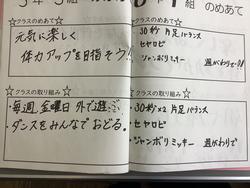 年 組 のめあて
組 のめあて
☆クラスのめあて☆
元気に楽しく
体力アップを目指そう!!
☆クラスの取り組み☆
・毎週 金曜日 外で遊ぶ。
・ダンスをみんなでおどる。
☆クラスのめあて☆
・30秒 片足バランス
・セヤロビ
・ジャンボリミッキー 週がわりで
☆クラスの取り組み☆
・30秒×2 片足バランス
・セヤロビ
・ジャンボリミッキー 週がわりで